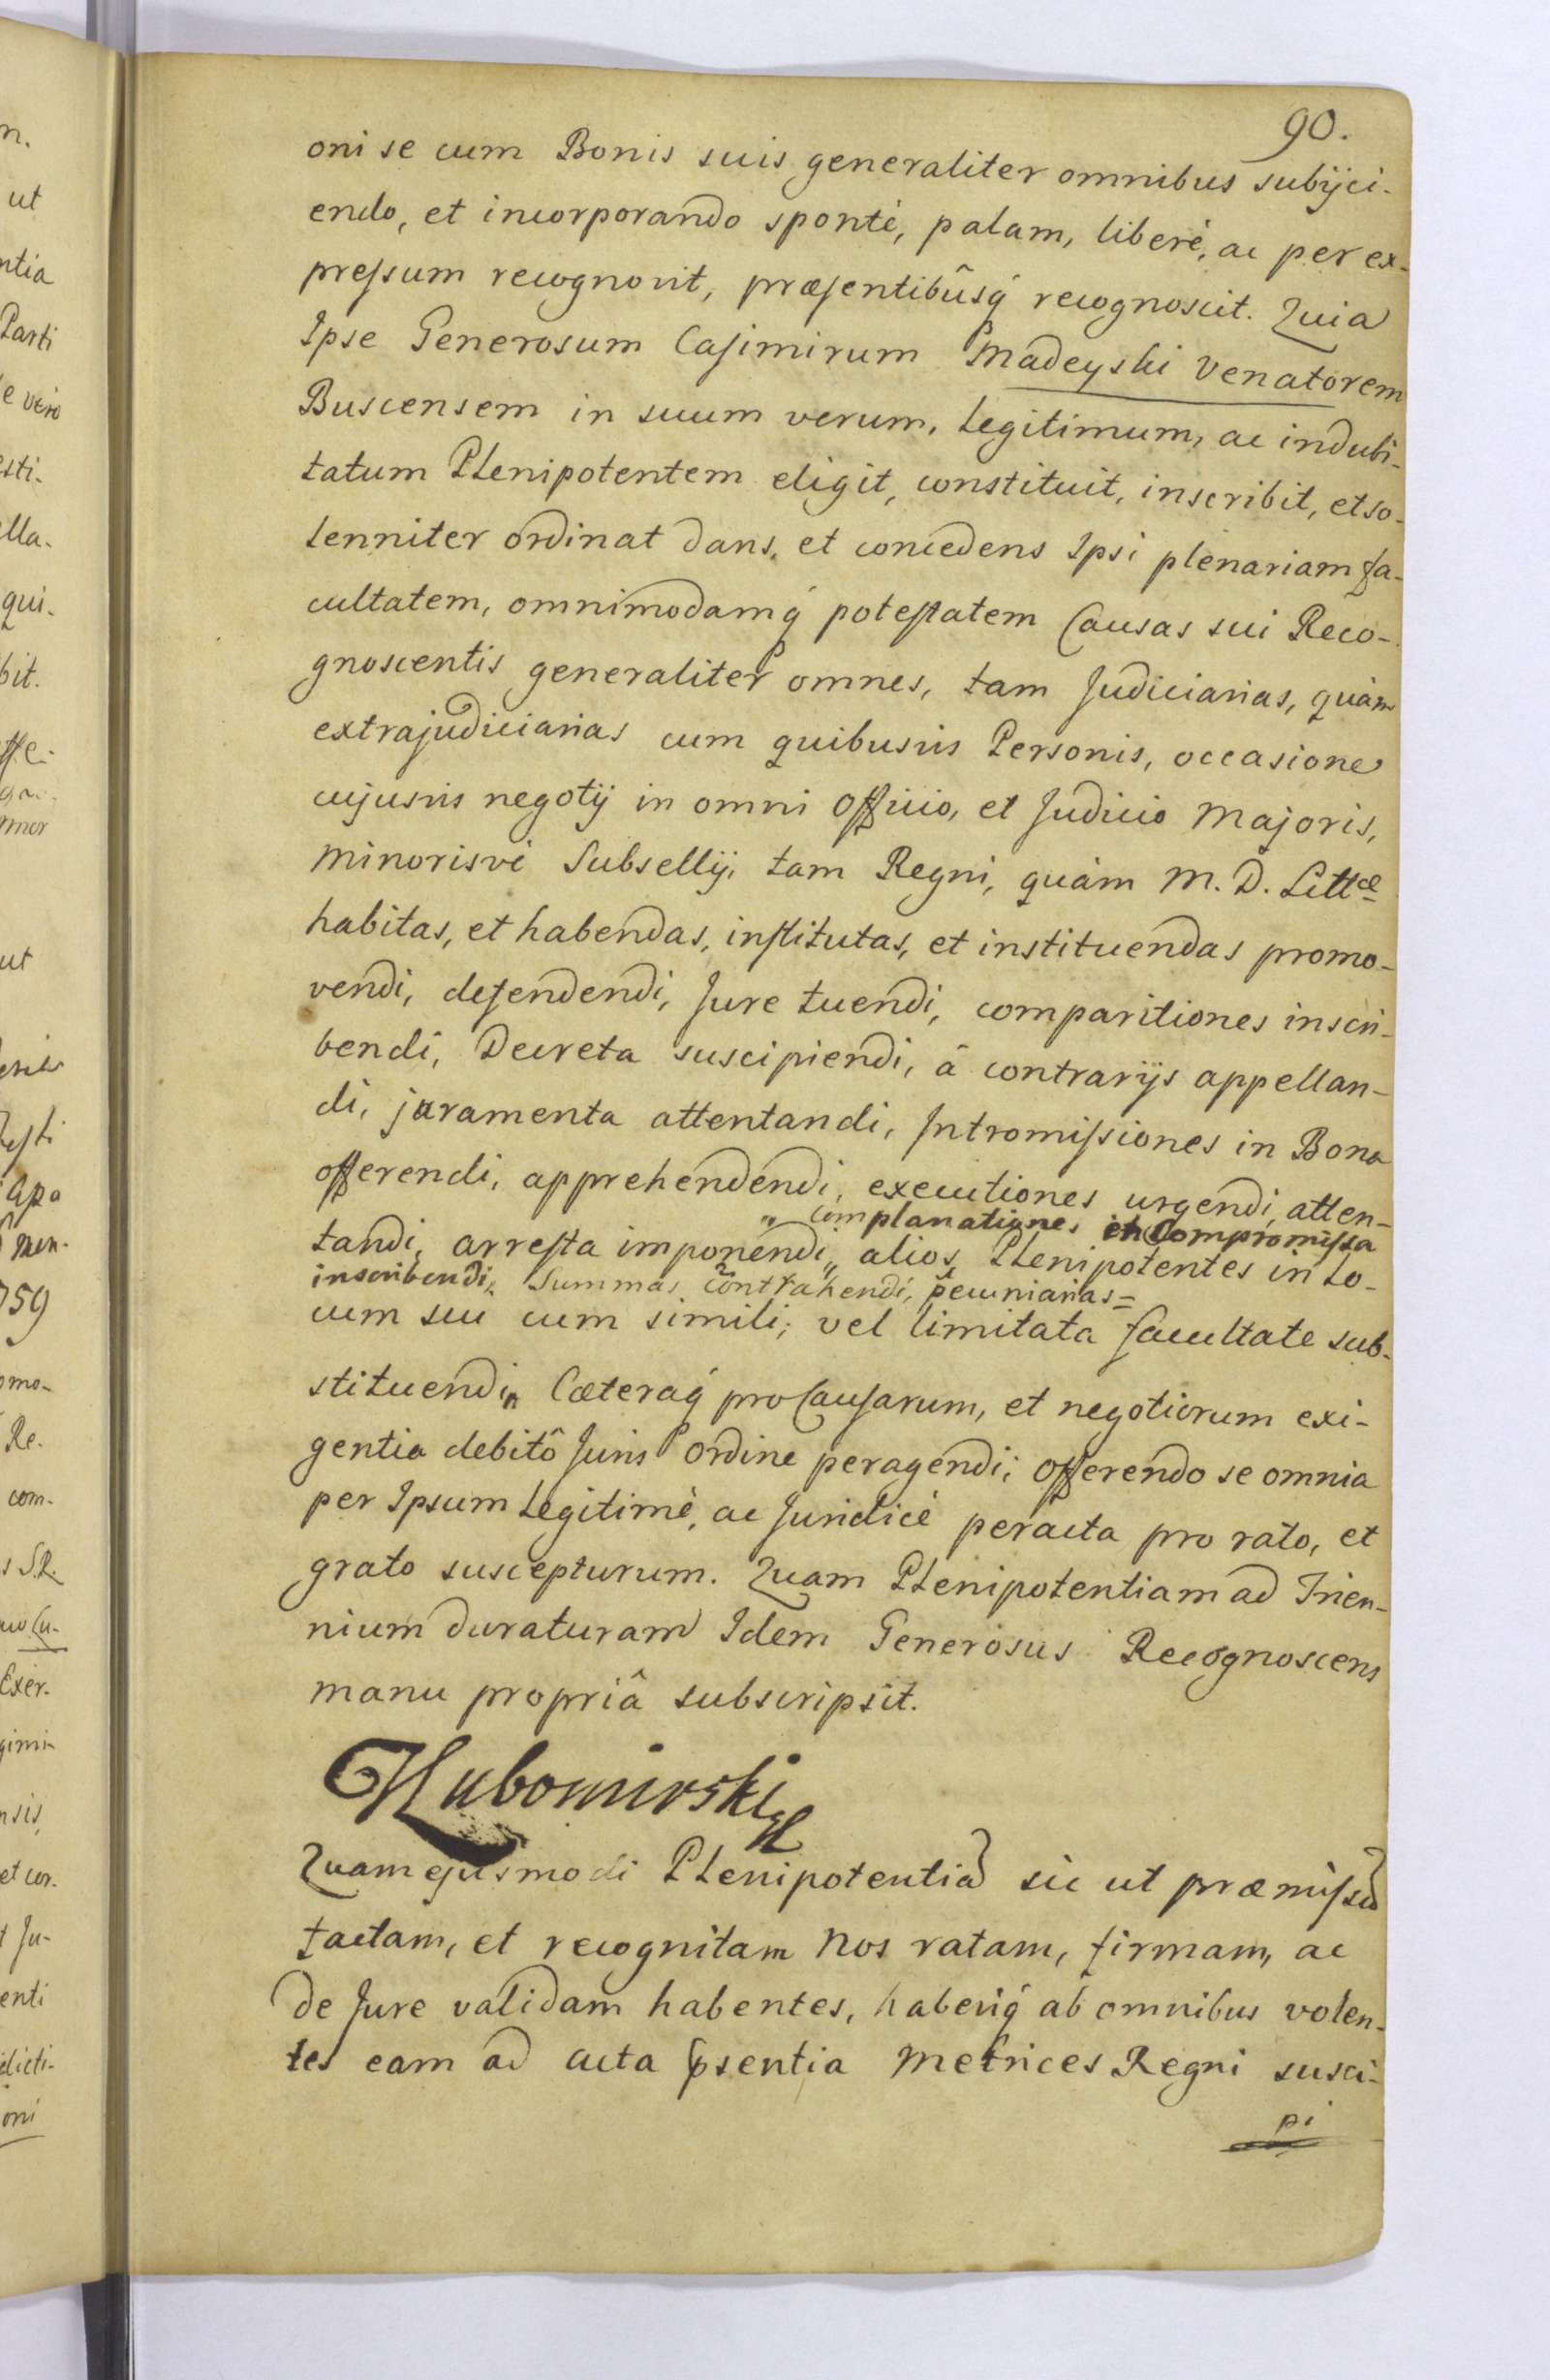 90.
oni se cum Bonis suis generaliter omnibus subijci-
endo, et incorporando spontè, palam, liberè, ac per ex-
pressum recognovit, præsentibûsq́ recognoscit. Quia
Ipse Generosum Casimirum Madeyski Venatorem
Buscensem in suum verum, legitimum, ac indubi-
tatum Plenipotentem eligit, constituit, inscribit, et so-
lenniter ordinat dans, et concedens Ipsi plenariam fa-
cultatem, omnimodamq́ potestatem Causas sui Reco-
gnoscentis generaliter omnes, tam Judiciarias, quàm
extrajudiciarias cum quibusvis Personis, occasione
cujusvis negotij in omni Officio, et Judicio Majoris,
Minorisvè Subsellij, tam Regni, quàm M. D. Littæ
habitas, et habendas, institutas, et instituendas promo-
vendi, defendendi, Jure tuendi, comparitiones inscri-
bendi, Decreta suscipiendi, â contrarijs appellan-
di, juramenta attentandi, Intromissiones in Bona
offerendi, apprehendendi, executiones urgendi, atten-
" complanationes et Compromissa
tandi, arresta imponendi,, alios Plenipotentes in lo-
inscribendi, Summas contrahendi, pecuniarias=
cum sui cum simili; vel limitata facultate sub-
stituendi, Cæteraq́ pro Causarum, et negotiorum exi-
gentia debitô Juris Ordine peragendi; Offerendo se omnia
per Ipsum legitimè, ac Juridicè peracta pro rato, et
grato suscepturum. Quam Plenipotentiam ad Trien-
nium duraturam Idem Generosus Recognoscens
manu propriâ subscripsit.
Lubomirski
Quam ejusmodi Plenipotentiã sic ut præmissũ
tactam, et recognitam Nos ratam, firmam, ac
de Jure validam habentes, haberiq́ ab omnibus volen-
tes eam ad acta psentia Metrices Regni susci-
pi